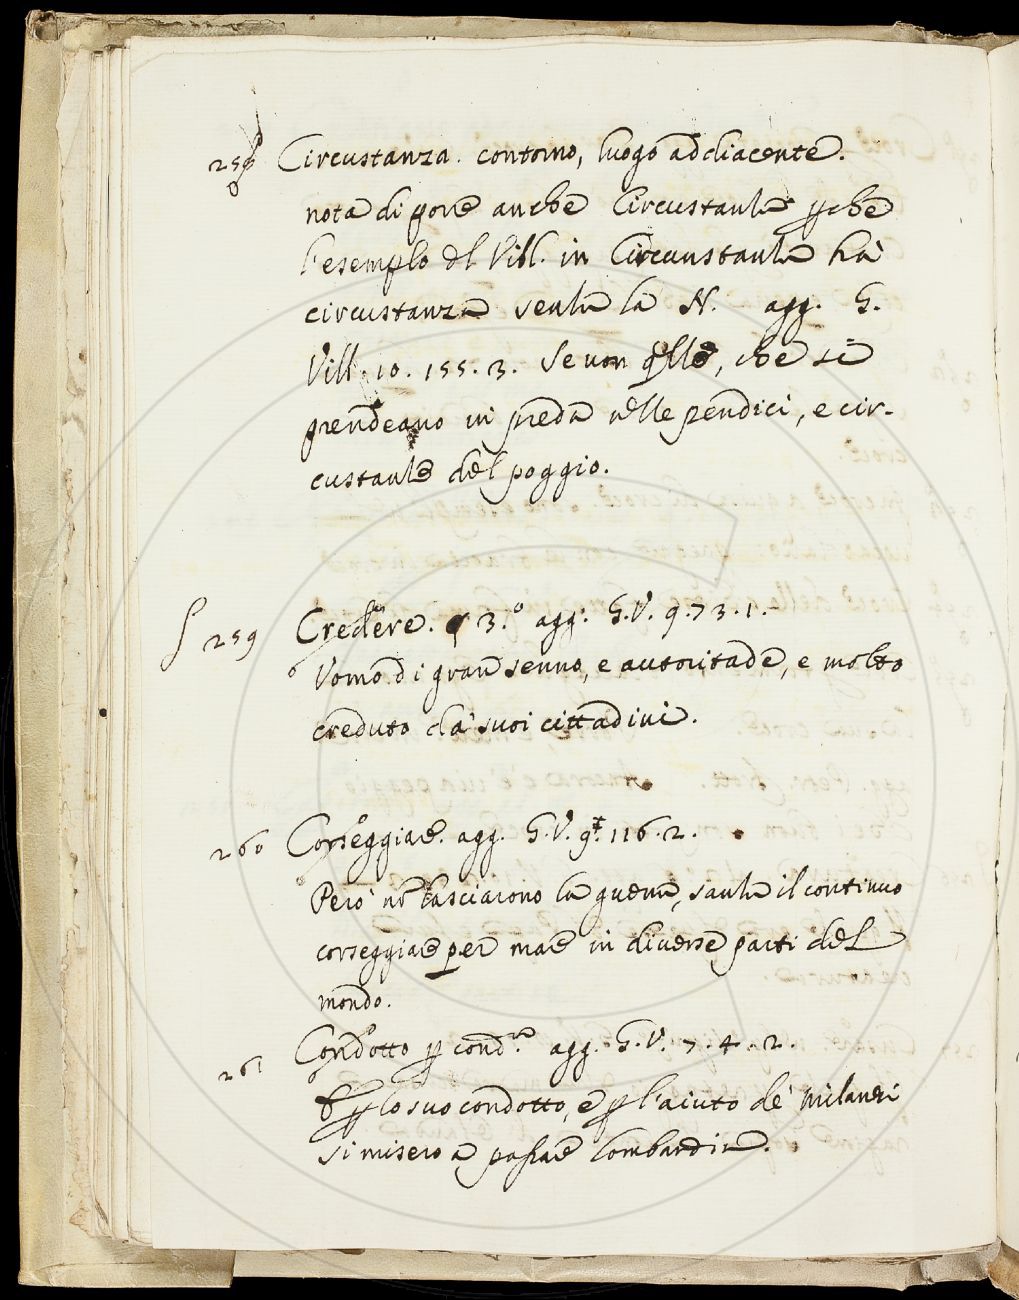 258 Circustanza. contorno, luogo addiacente.
nota di porre anche Circustantia pche
l'esemplo del Vill. in Circunstantia ha
circustanza senza la N. agg. G.
Vill. 10. 155. 3. Se non qlle, che si
prendeano in preda nelle pendici, e cir-
custanze del poggio.
259 Credere. 3.o agg. G. V. 9. 73. 1.
Uomo di gran senno, e autoritade, e molto
creduto da' suoi cittadini.
260 Corseggiare. agg. G. V. 9. 116. 2.
Però nō lasciarono la guerra, salvo il continuo
corseggiare per mare in diverse parti del
mondo.
261 Condotto p cond.ta agg. G. V. 7. 4. 2.
E p lo suo condotto, e p l'aiuto de' Milanesi
si misero a passare Lombardia.